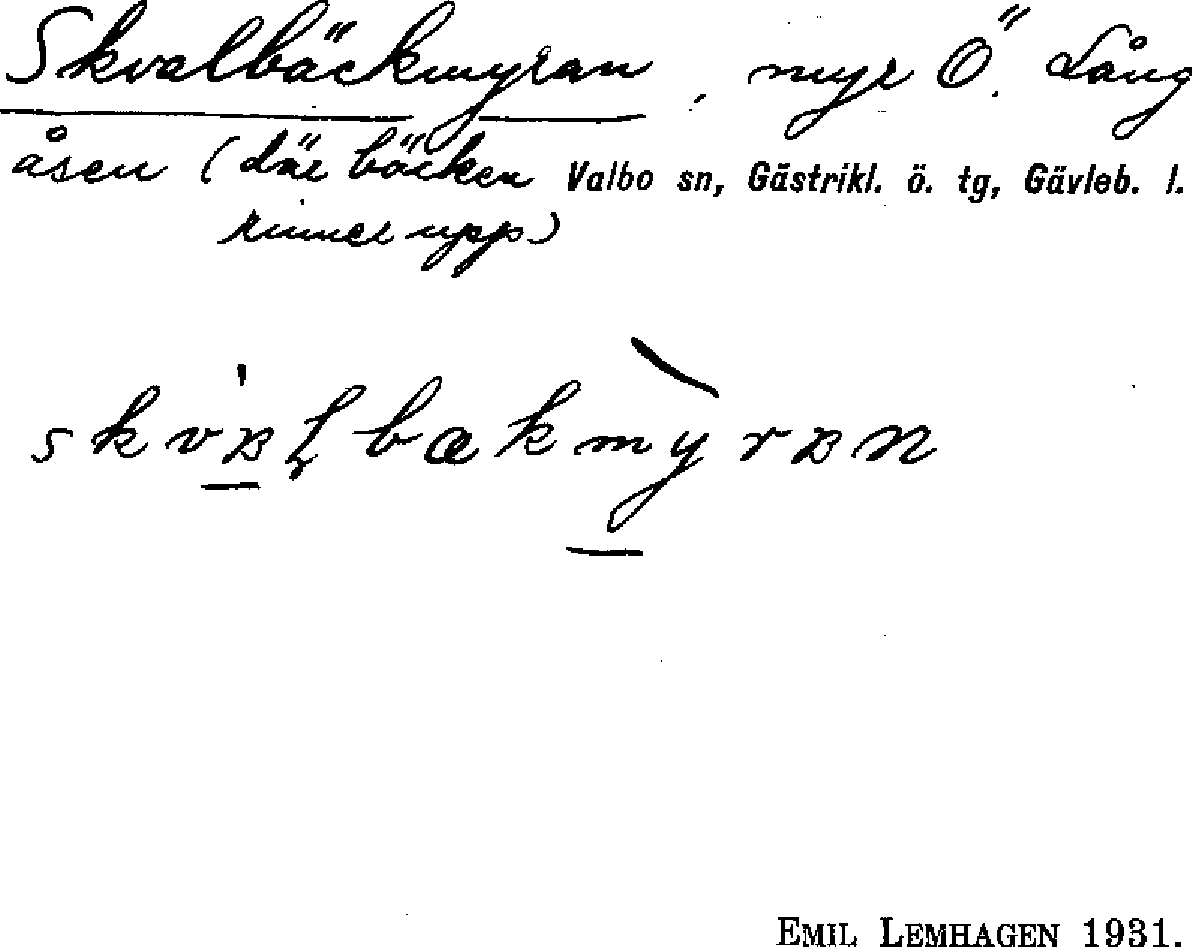 Skvalbäckmyran, myr Ö. Lång
åsen (där bäcken Valbo sn, Gästrikl. ö. tg, Gävleb. l.
rinner upp)
skvaɭbækmỳran
EMIL LEMHAGEN 1931.